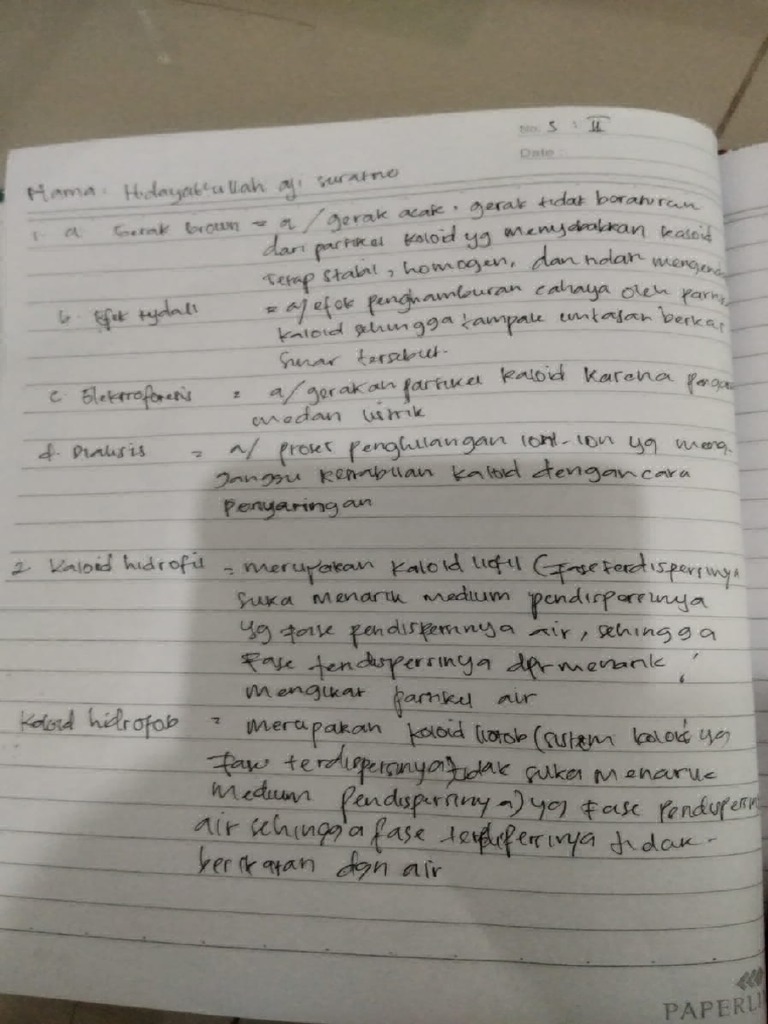 No. 5 : II
Date :
Nama : Hidayattullah aji suratno
1. a Gerak brown = a/ gerak acak, gerak tidak boraturan
dari partikel koloid yg menyebabkan kaloid
tetap stabil, homogen, dan tidak mengen
b. Efek tydall = a/ efek penghamburan cahaya oleh parti
kaloid sehingga tampak lintasan berkas
sinar tersebut.
c Elektroforesis = a/ gerakan partikel kaloid karena
medan listrik
d. Dialisis = a/ proses penghilangan ion-ion yg meng
ganggu kestabilan kaloid dengan cara
penyaringan
2. Kaloid hidrofil = merupakan kaloid liofil (fase terdispersinya
suka menarik medium pendispersinya
yg fase pendispersinya air, sehingga
fase terdispersinya dpt menarik /
mengikat partikel air
Koloid hidrofob = merupakan koloid liofob (sistem koloid yg
fase terdispersinya tidak suka menarik
medium pendispersinya) yg fase pendispersin
air sehingga fase terdispersinya tidak
berikatan dgn air
PAPERLI